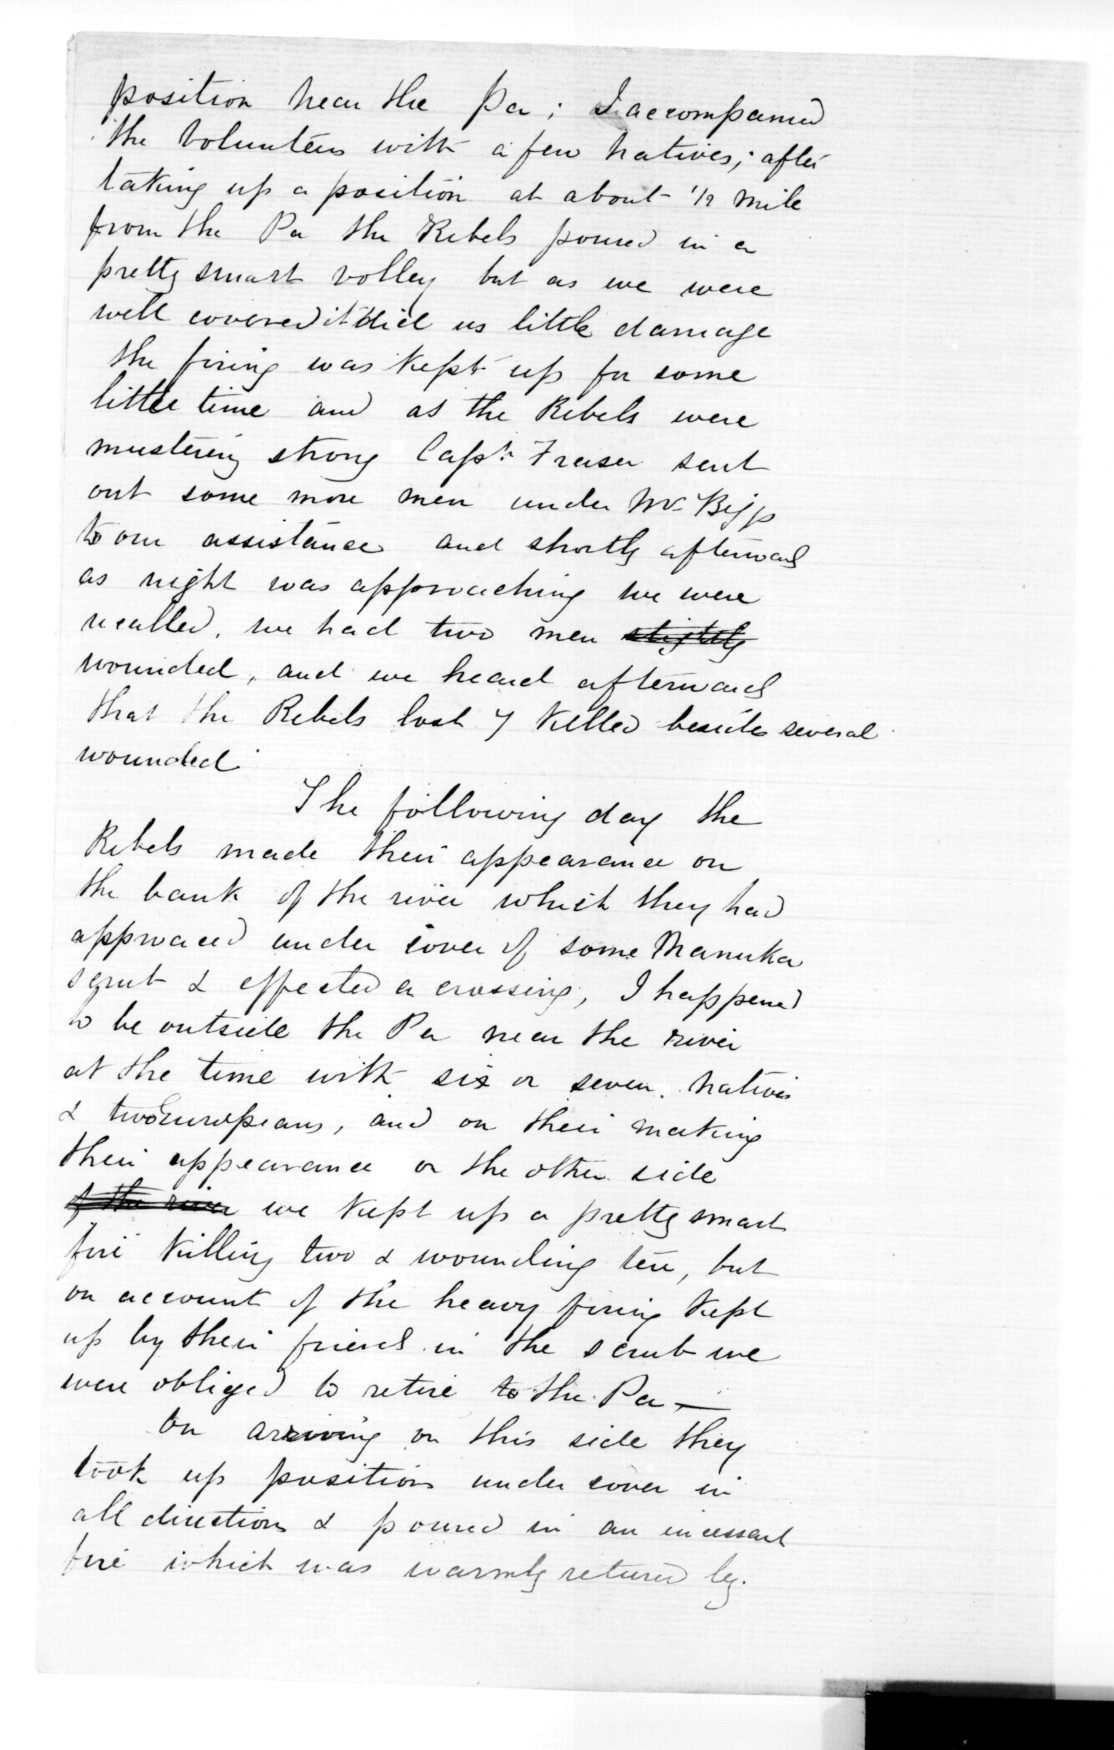 position near the Pa; I accompanied
the Volunteers with a few natives; after
taking up a position at about 1/2 mile
from the Pa the Rebels poured in a
pretty smart volley but as we were
well covered it did us little damage
the firing was kept up for some
little time and as the Rebels were
mustering strong Capt. Fraser sent
out some more men under Mr Biggs
to our assistance and shortly afterwards
as night was approaching we were
recalled, we had two men slightly
wounded, and we heard afterwards
that the Rebels lost 7 killed besides several
wounded.
The following day the
Rebels made their appearance on
the bank of the river which they had
approaced under cover of some Manuka
scrub & effected a crossing, I happened
to be outside the Pa near the river
at the time with six or seven natives
& two Europeans, and on their making
their appearance on the other side
of the river we kept up a pretty smart
fire killing two & wounding ten, but
on account of the heavy firing kept
up by their friends in the scrub we
were obliged to retire to the Pa —
On arriving on this side they
took up position under cover in
all directions & poured in an incessant
fire which was warmly returned by.